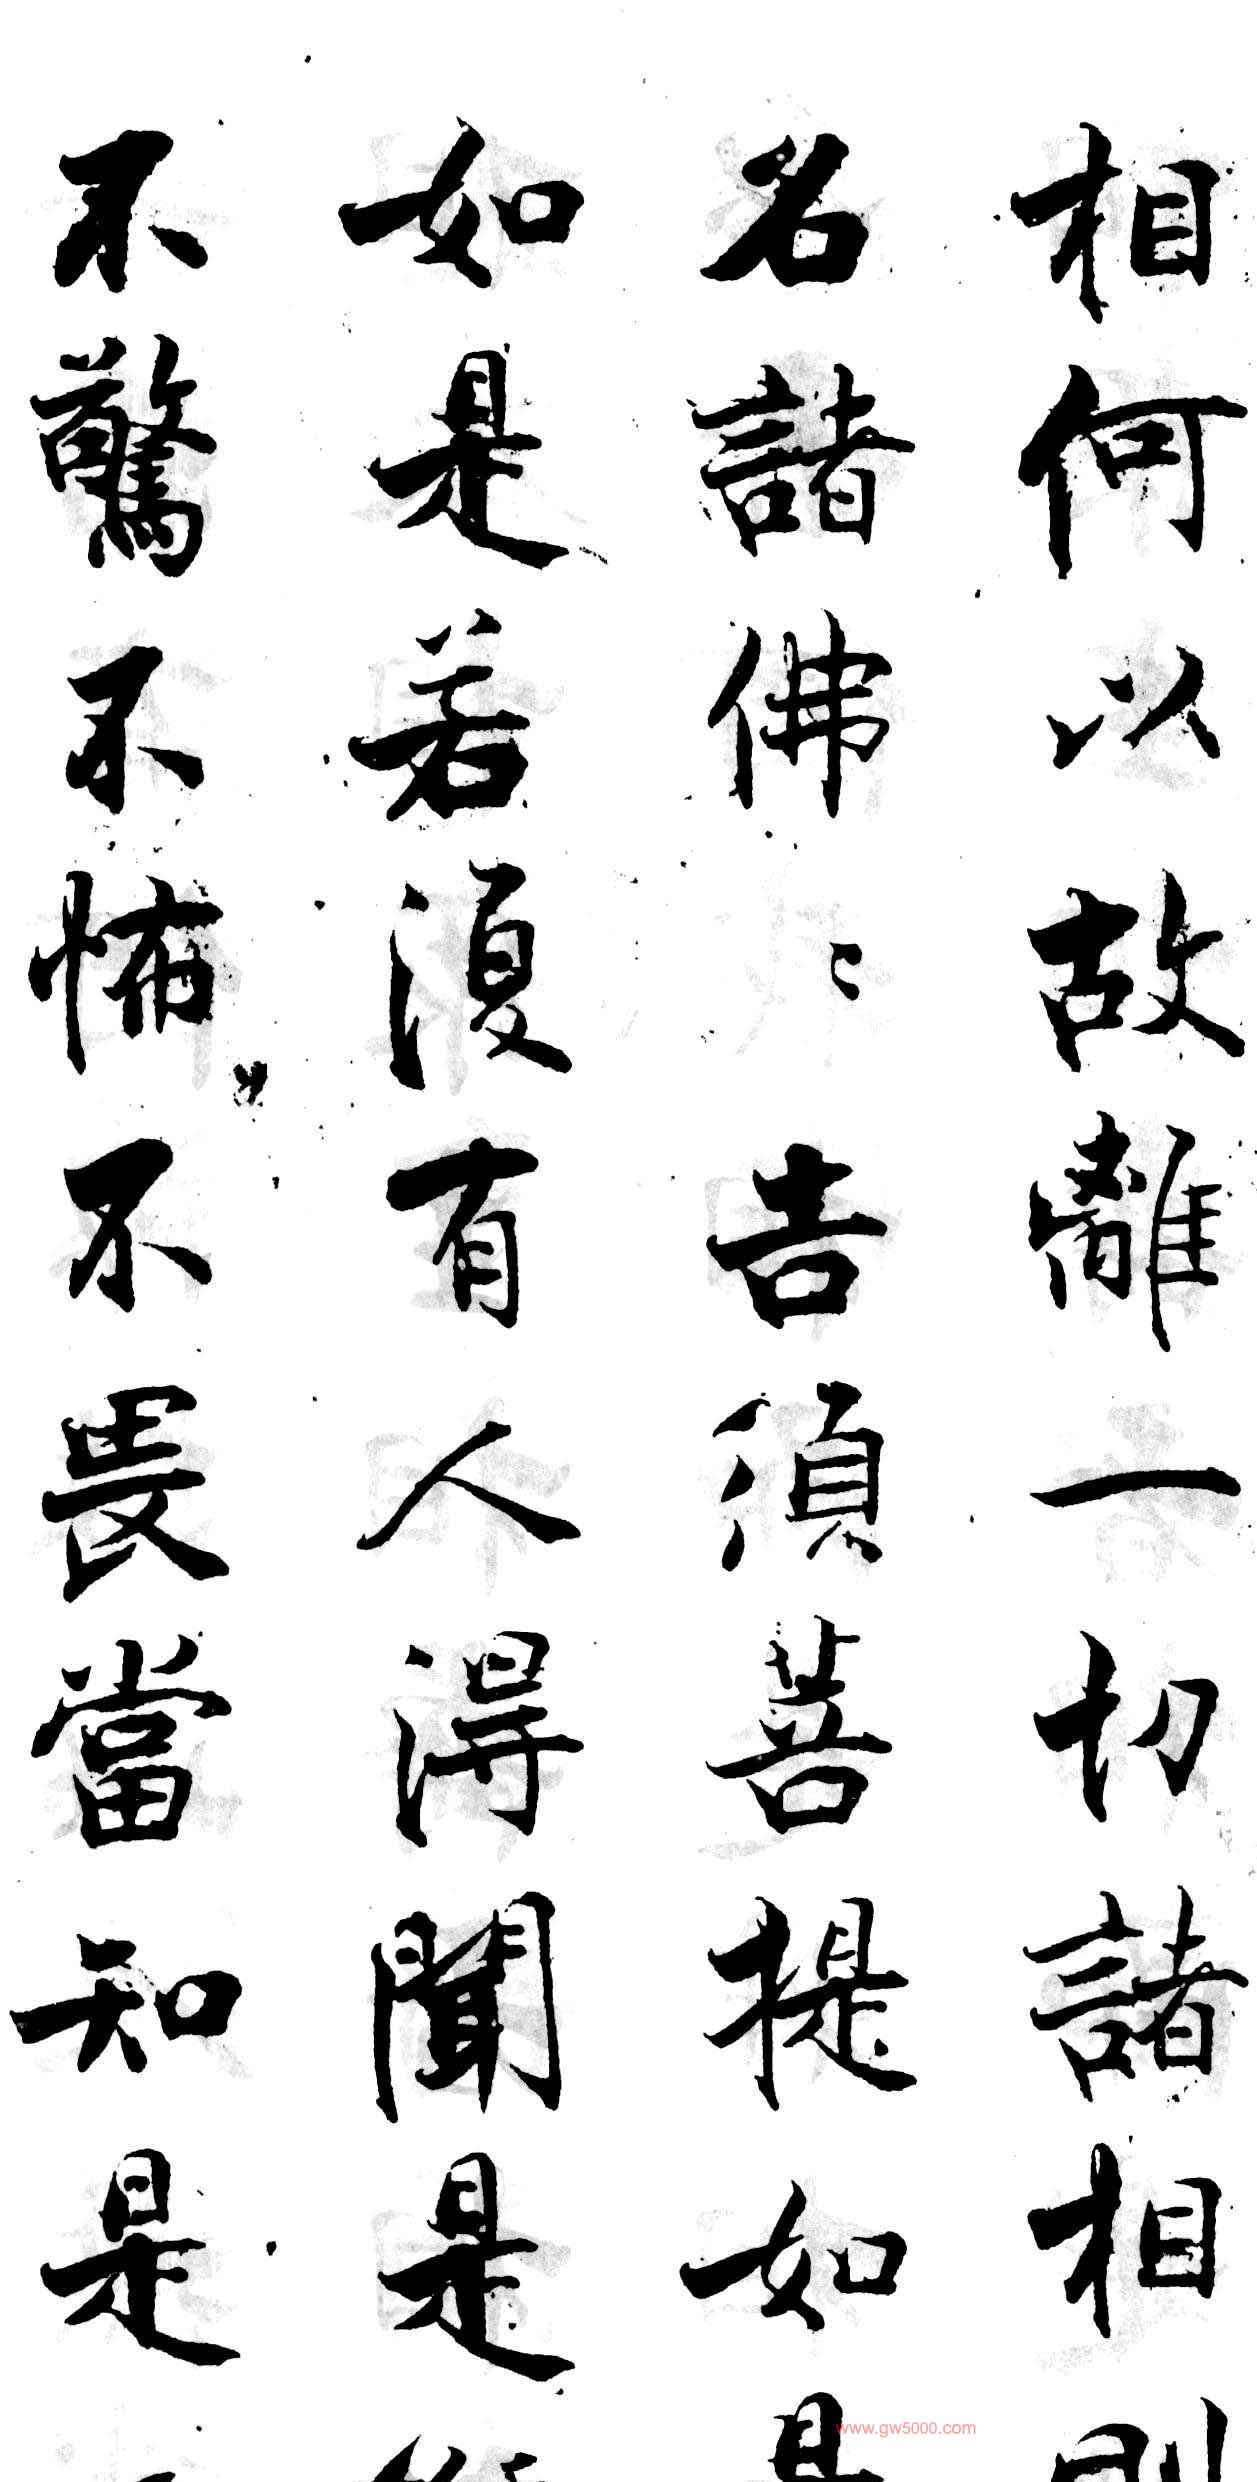 相何以故離一切諸相則
名諸佛〻告須菩提如是
如是若復有人得聞是
不驚不怖不畏當知是
www.gw5000.com